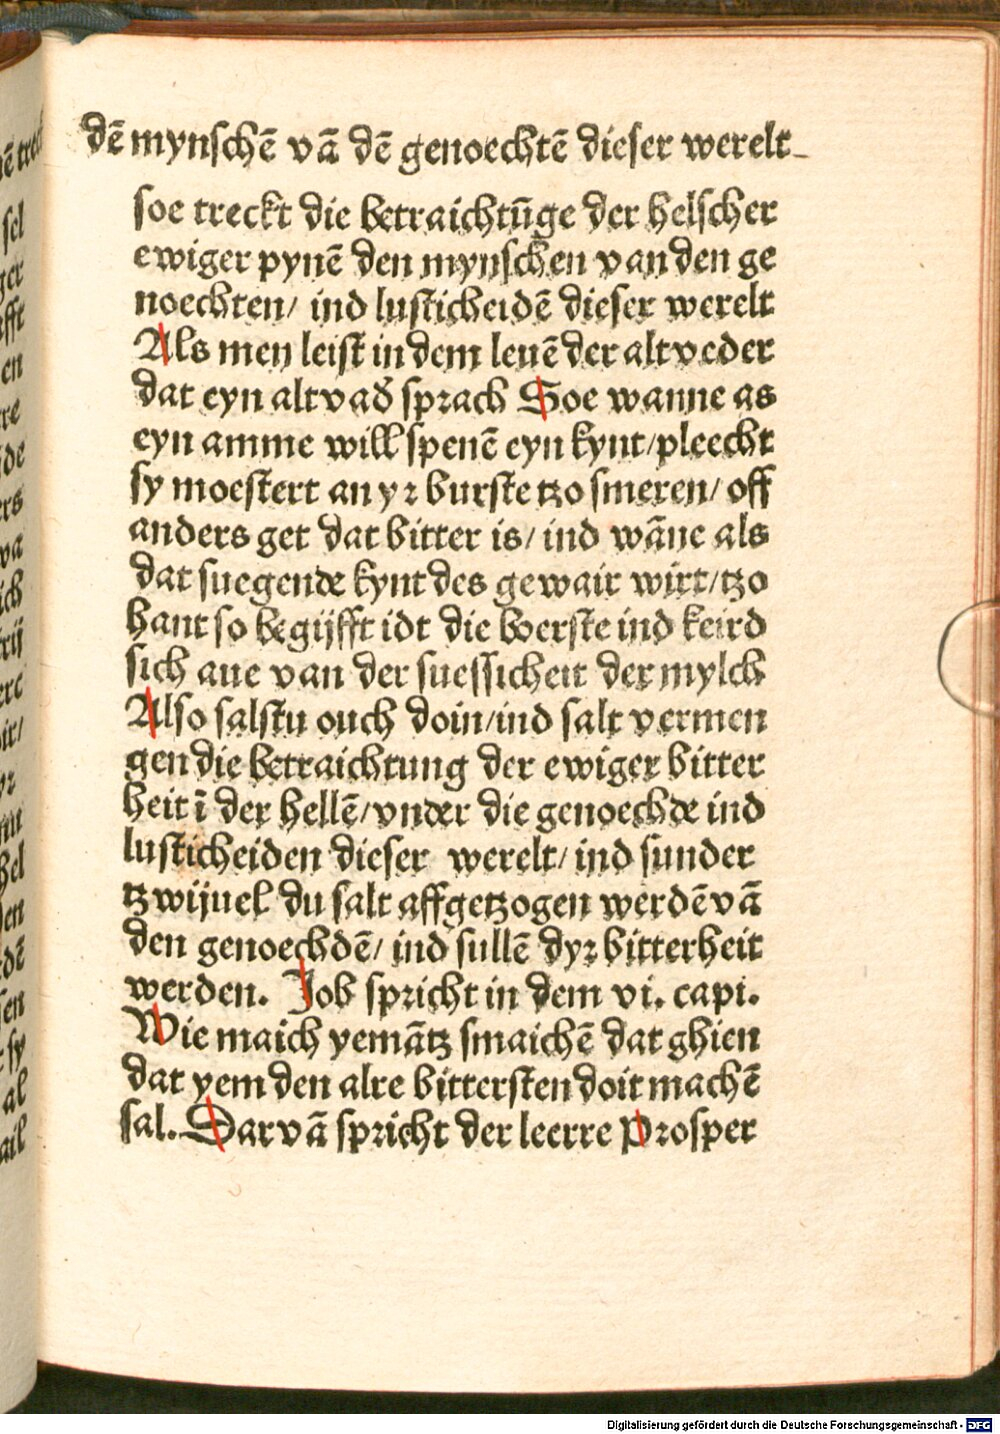 dē mynschē vā dē genoechtē dieser werelt
soe treckt die betraichtūge der helscher
ewiger pynē den mynschen van den ge
noechten/ ind lusticheidē dieser werelt
Als men leist in dem leuē der altveder
dat eyn altvad̕ sprach Soe wanne as
eyn amme will spenē eyn kynt/pleecht
sy moestert an yr burste tzo smeren/ off
anders get dat bitter is/ ind wāne als
dat suegende kynt des gewair wirt/tzo
hant so begijfft idt die boerste ind keird
sich aue van der suessicheit der mylch
Also salstu ouch doin/ind salt vermen
gen die betraichtung der ewiger bitter
heit ī der hellē/vnder die genoechde ind
lusticheiden dieser werelt/ ind sunder
tzwijuel du salt affgetzogen werdē vā
den genoechdē/ ind sullē dyr bitterheit
werden. Job spricht in dem vi. capi.
Wie maich yemātz smaichē dat ghien
dat yem den alre bittersten doit machē
sal. Dar vā spricht der leerre Prosper
Digitalisierung gefördert durch die Deutsche Forschungsgemeinschaft - DFG